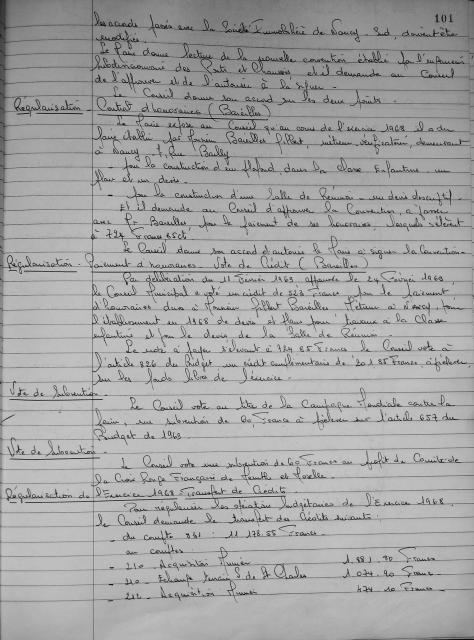 101
les accords passés avec la Société Immobilière de Nancy Sud, doivent être
modifiés.
Le Maire donne lecture de la nouvelle convention établie par l'Ingénieur
des Ponts et Chaussées, et il demande au Conseil
de l'approuver et de l'autoriser à la signer.
Le Conseil donne son accord sur les deux points.
Régularisation - Contrat d'honoraires (Bareilles)
Le Maire expose au Conseil qu'au cours de l'exercice 1968 il a dû
faire établir par Monsieur Bareilles Gilbert, métreur vérificateur, demeurant
à Nancy 7, Rue Bailly
- pour la construction d'un plafond dans la classe Enfantine, un
plan et un devis.
- pour la construction d'une Salle de Réunion un devis descriptif.
Et il demande au Conseil d'approuver la Convention, à passer
avec Mr Bareilles pour le paiement de ses honoraires, lesquels s'élèvent
à 724 Francs 85 cts
Le Conseil donne son accord et autorise le Maire à signer la Convention.
Régularisation - Paiement d'honoraires - Vote de Crédit (Bareilles)
Par délibération du 11 Février 1969, approuvée le 24 Février 1969,
le Conseil Municipal a voté un crédit de 523 Francs pour le paiement
d'honoraires dus à Monsieur Gilbert Bareilles Métreur à Nancy, pour
l'établissement en 1968 de devis et plans pour travaux à la Classe
enfantine et pour le devis de la Salle de Réunion.
La note à payer s'élevant à 724.85 Francs le Conseil vote à
l'article 826 du Budget un crédit complémentaire de 201.85 Francs, à prélever
sur les fonds libres de l'exercice.
Vote de Subvention
Le Conseil vote au titre de la Campagne Mondiale contre la
faim, une subvention de 60 Francs à prélever sur l'article 657 du
Budget de 1969.
Vote de Subvention
Le Conseil vote une subvention de 60 Francs au profit du Comité de
la Croix Rouge Française de Meurthe et Moselle.
Régularisation de l'Exercice 1968 Transfert de Crédits
Pour régulariser les opérations budgétaires de l'Exercice 1968,
le Conseil demande le transfert des Crédits suivants :
- du compte : 11 178.55 Francs
au comptes :
- 210 - Acquisition 1.881.70 Francs
- Echange terrain St Charles 1.074.90 Francs
- 212 - Acquisition 474.10 Francs